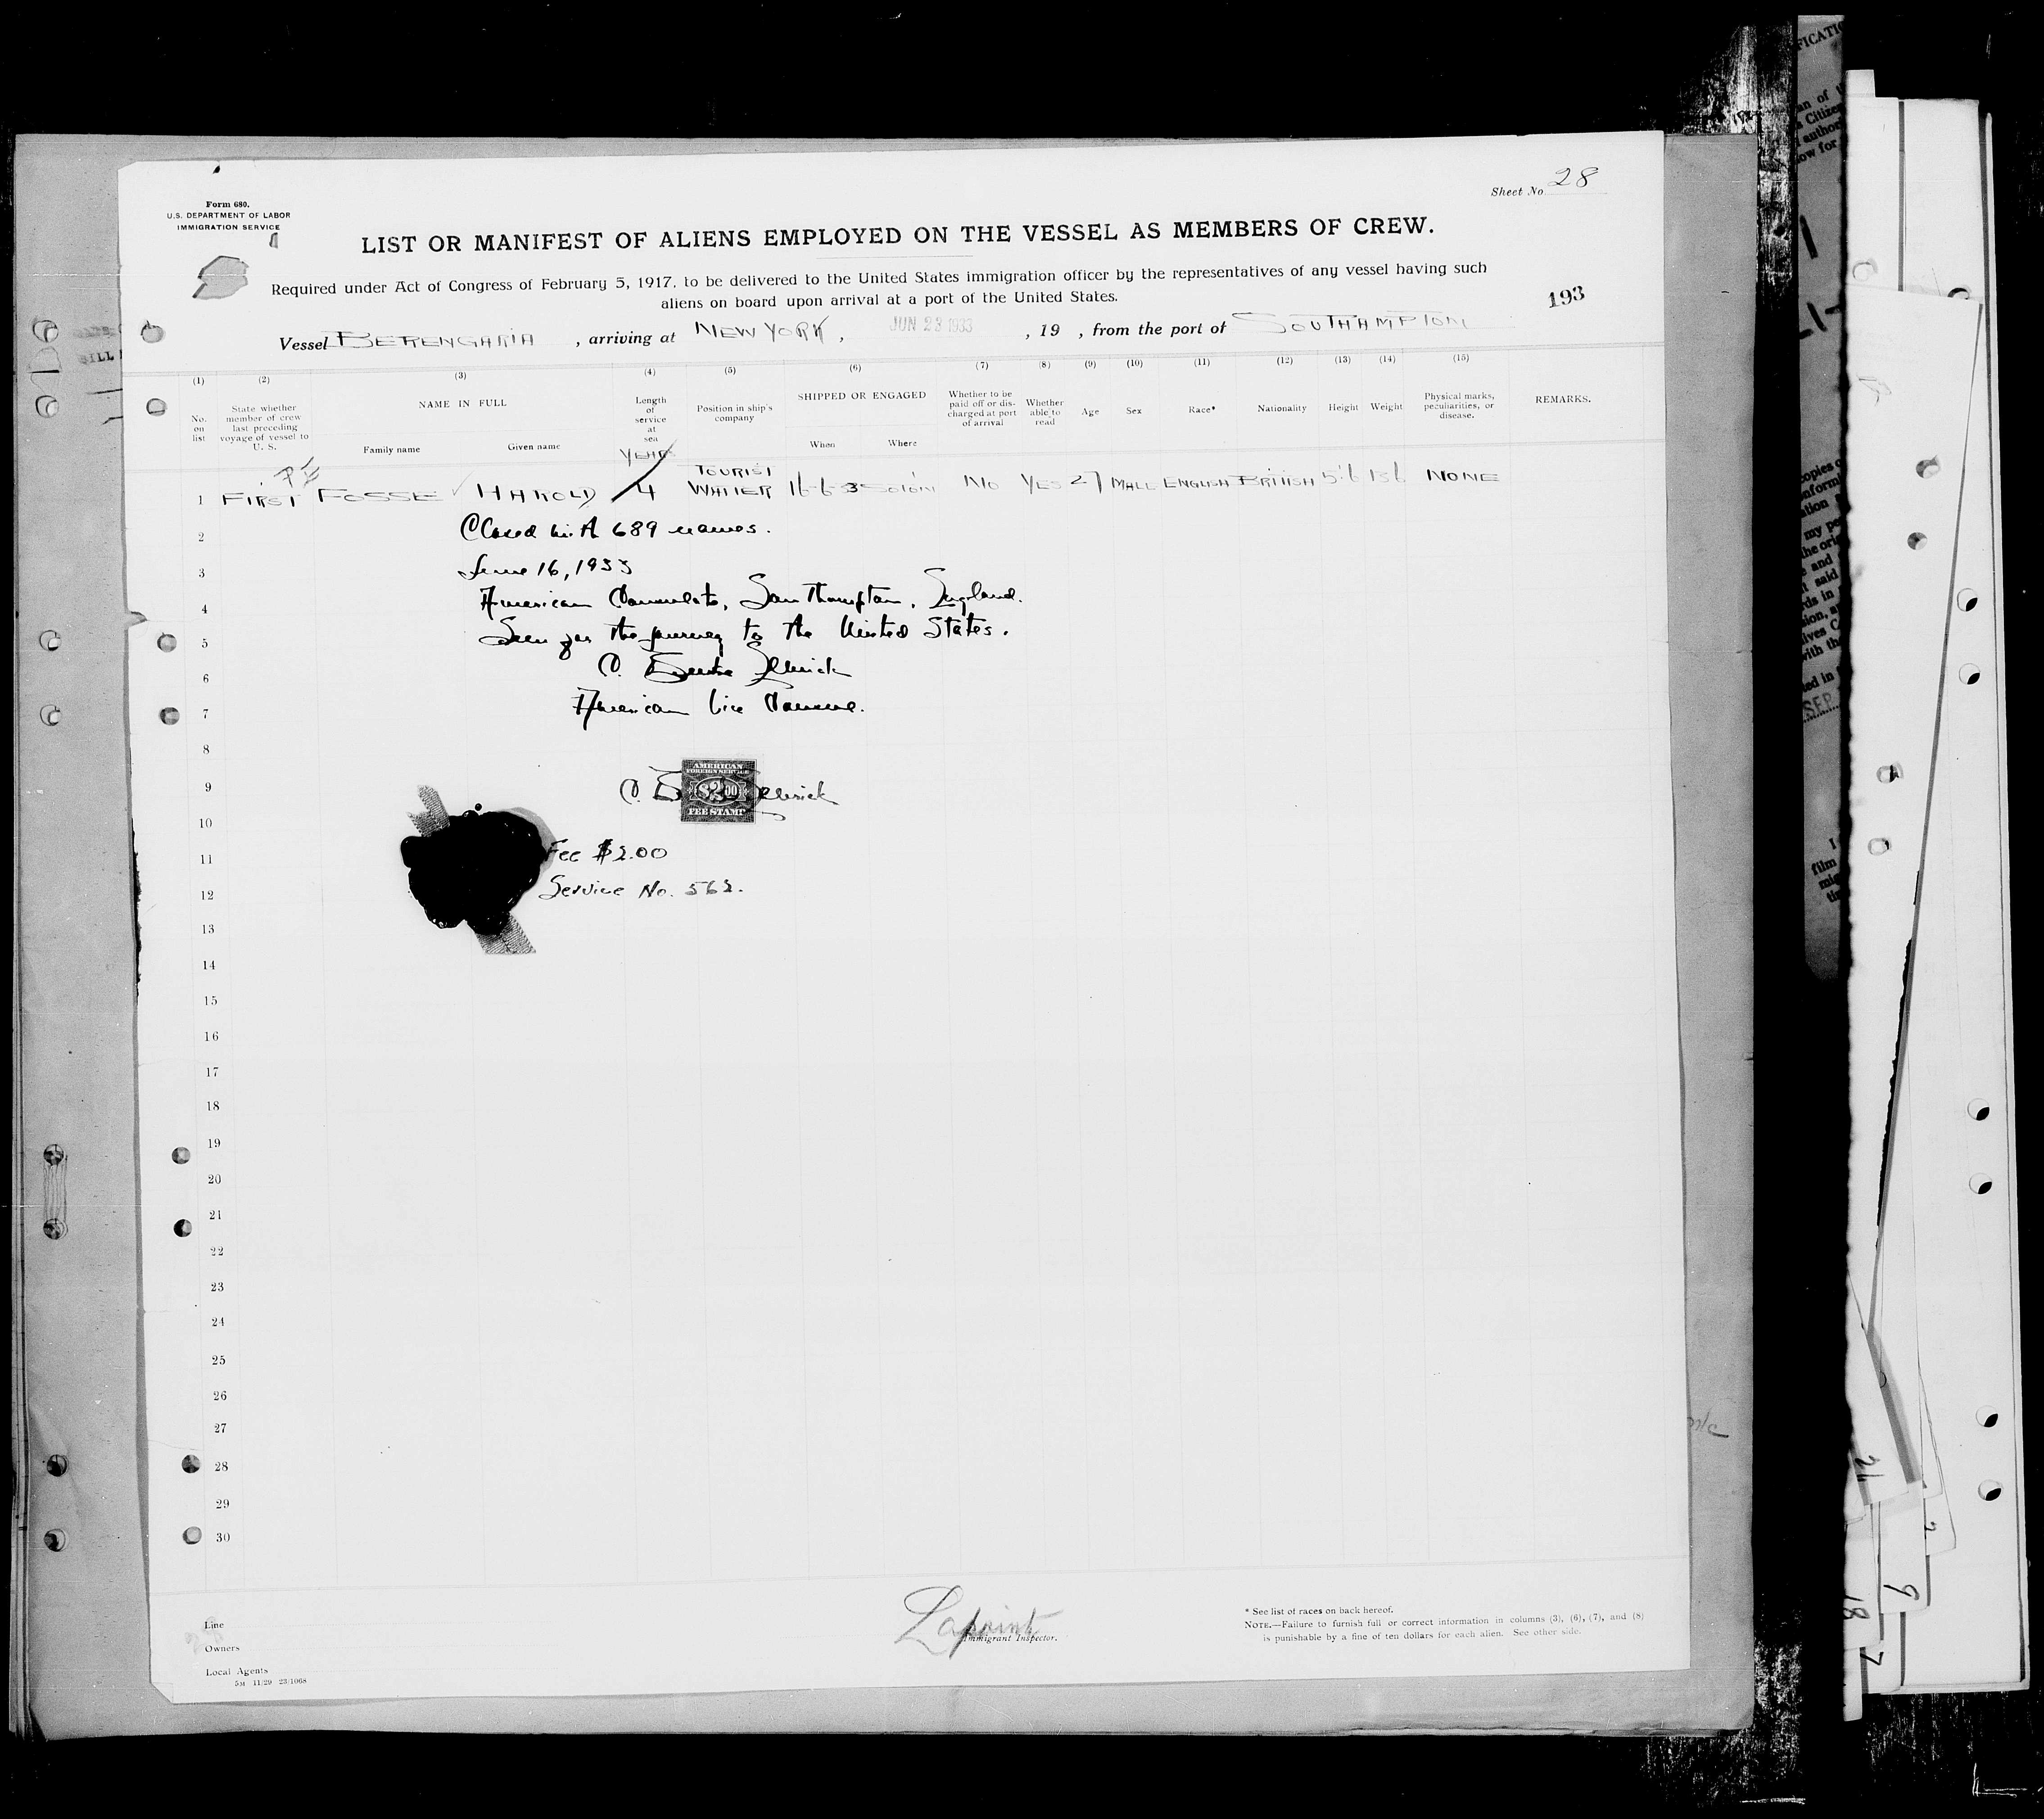 Sheet No. 28
Form 680.
U.S. DEPARTMENT OF LABOR
IMMIGRATION SERVICE
LIST OR MANIFEST OF ALIENS EMPLOYED ON THE VESSEL AS MEMBERS OF CREW.
Required under Act of Congress of February 5, 1917, to be delivered to the United States immigration officer by the representatives of any vessel having such
aliens on board upon arrival at a port of the United States.
193
Vessel BERENGARIA, arriving at NEW YORK, JUN 23 1933, 19 , from the port of SOUTHAMPTON
(1) (2) (3) (4) (5) (6) (7) (8) (9) (10) (11) (12) (13) (14) (15)
No. on list
State whether member of crew last preceding voyage of vessel to U. S.
NAME IN FULL
Family name
Given name
Length of service at sea
YEARS
Position in ship's company
SHIPPED OR ENGAGED
When
Where
Whether to be paid off or discharged at port of arrival
Whether able to read
Age
Sex
Race*
Nationality
Height
Weight
Physical marks, peculiarities, or disease.
REMARKS.
1 FIRST FOSSE HAROLD 4 TOURIST WAITER 16-6-3 SOTON NO YES 27 MALE ENGLISH BRITISH 5'6 136 NONE
2 Closed with 689 names.
3 June 16, 1933
4 American Consulate, Southampton, England.
5 Seen for the journey to the United States.
6 C.
7 American Vice Consul.
8
AMERICAN
FOREIGN SERVICE
9 C. $2.00
FEE STAMP
10
11 Fee $2.00
12 Service No. 562.
13
14
15
16
17
18
19
20
21
22
23
24
25
26
27
28
29
30
Line
Owners
Local Agents
5M 11/29 23/1068
Immigrant Inspector.
* See list of races on back hereof.
NOTE.—Failure to furnish full or correct information in columns (3), (6), (7), and (8)
is punishable by a fine of ten dollars for each alien. See other side.